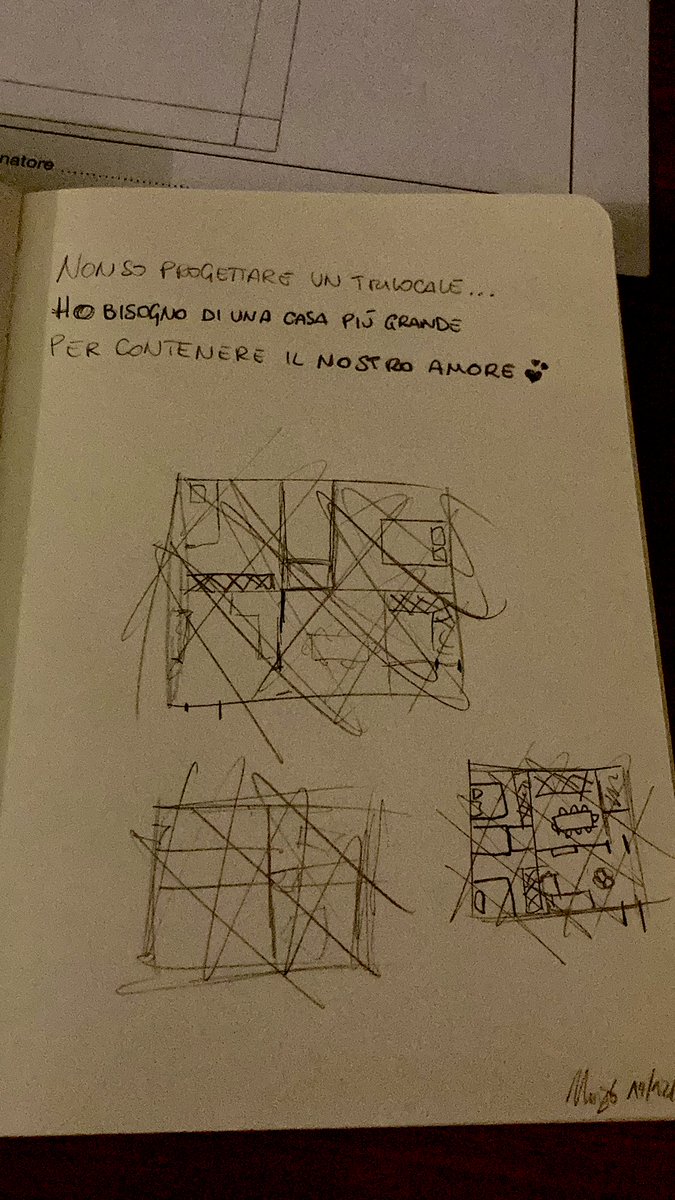 natore
NON SO PROGETTARE UN TRILOCALE...
HO BISOGNO DI UNA CASA PIÙ GRANDE
PER CONTENERE IL NOSTRO AMORE